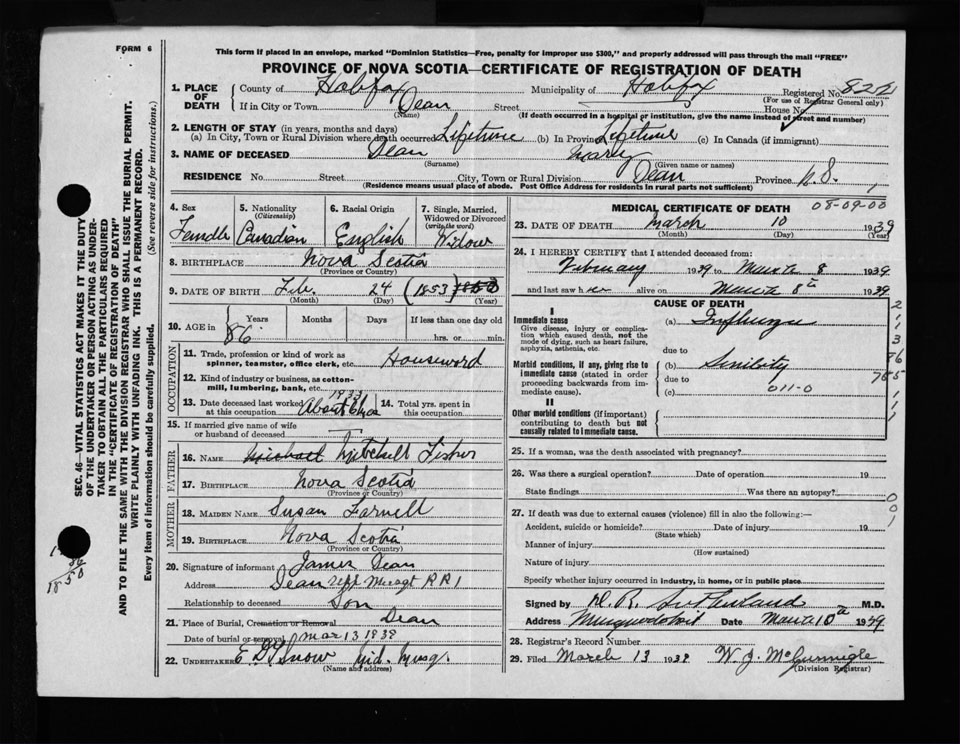 FORM 6
This form if placed in an envelope, marked "Dominion Statistics—Free, penalty for improper use $300," and properly addressed will pass through the mail "FREE"
PROVINCE OF NOVA SCOTIA—CERTIFICATE OF REGISTRATION OF DEATH
1. PLACE OF DEATH
County of Halifax Municipality of Halifax Registered No. 822
(For use of Registrar General only)
If in City or Town Dean Street House No.
(Name) (If death occurred in a hospital or institution, give the name instead of street and number)
2. LENGTH OF STAY (in years, months and days)
(a) In City, Town or Rural Division where death occurred Lifetime (b) In Province Lifetime (c) In Canada (if immigrant)
3. NAME OF DECEASED Dean Mary
(Surname) (Given name or names)
RESIDENCE No. Street City, Town or Rural Division Dean Province N.S.
(Residence means usual place of abode. Post Office Address for residents in rural parts not sufficient)
4. Sex 5. Nationality (Citizenship) 6. Racial Origin 7. Single, Married, Widowed or Divorced (write the word)
Female Canadian English Widow
8. BIRTHPLACE Nova Scotia
(Province or Country)
9. DATE OF BIRTH Feb. 24 (1853)
(Month) (Day) (Year)
10. AGE in Years Months Days If less than one day old
86 hrs. or min.
OCCUPATION
11. Trade, profession or kind of work as spinner, teamster, office clerk, etc. Housework
12. Kind of industry or business, as cotton-mill, lumbering, bank, etc.
13. Date deceased last worked at this occupation 1933 About 14. Total yrs. spent in this occupation
15. If married give name of wife or husband of deceased
FATHER
16. NAME Michael Mitchell Fisher
17. BIRTHPLACE Nova Scotia
(Province or Country)
MOTHER
18. MAIDEN NAME Susan Farnell
19. BIRTHPLACE Nova Scotia
(Province or Country)
20. Signature of informant James Dean
Address Dean Upp Musqt RR 1
Relationship to deceased Son
21. Place of Burial, Cremation or Removal Dean
Date of burial or removal Mar 13 1939
22. UNDERTAKER Snow Mid. Musq.
(Name and address)
MEDICAL CERTIFICATE OF DEATH 08-09-00
23. DATE OF DEATH March 10 1939
(Month) (Day) (Year)
24. I HEREBY CERTIFY that I attended deceased from:
February 1939 to March 8 1939
and last saw her alive on March 8th 1939
CAUSE OF DEATH
I
Immediate cause
Give disease, injury or complication which caused death, not the mode of dying, such as heart failure, asphyxia, asthenia, etc.
(a) Influenza
due to
Morbid conditions, if any, giving rise to immediate cause (stated in order proceeding backwards from immediate cause).
(b) Senility
due to
(c) 011-0
II
Other morbid conditions (if important) contributing to death but not causally related to immediate cause.
25. If a woman, was the death associated with pregnancy?
26. Was there a surgical operation? Date of operation 19
State findings Was there an autopsy?
27. If death was due to external causes (violence) fill in also the following:—
Accident, suicide or homicide? Date of injury 19
(State which)
Manner of injury
(How sustained)
Nature of injury
Specify whether injury occurred in industry, in home, or in public place
Signed by D. R. Sutherland M.D.
Address Musquodoboit Date March 10th 1939
28. Registrar's Record Number
29. Filed March 13 1939 W. J. McGunnigle
(Division Registrar)
SEC. 46—VITAL STATISTICS ACT MAKES IT THE DUTY
OF THE UNDERTAKER OR PERSON ACTING AS UNDER-
TAKER TO OBTAIN ALL THE PARTICULARS REQUIRED
IN THE "CERTIFICATE OF REGISTRATION OF DEATH"
AND TO FILE THE SAME WITH THE DIVISION REGISTRAR WHO SHALL ISSUE THE BURIAL PERMIT.
WRITE PLAINLY WITH UNFADING INK. THIS IS A PERMANENT RECORD.
Every item of information should be carefully supplied. (See reverse side for instructions.)
1850